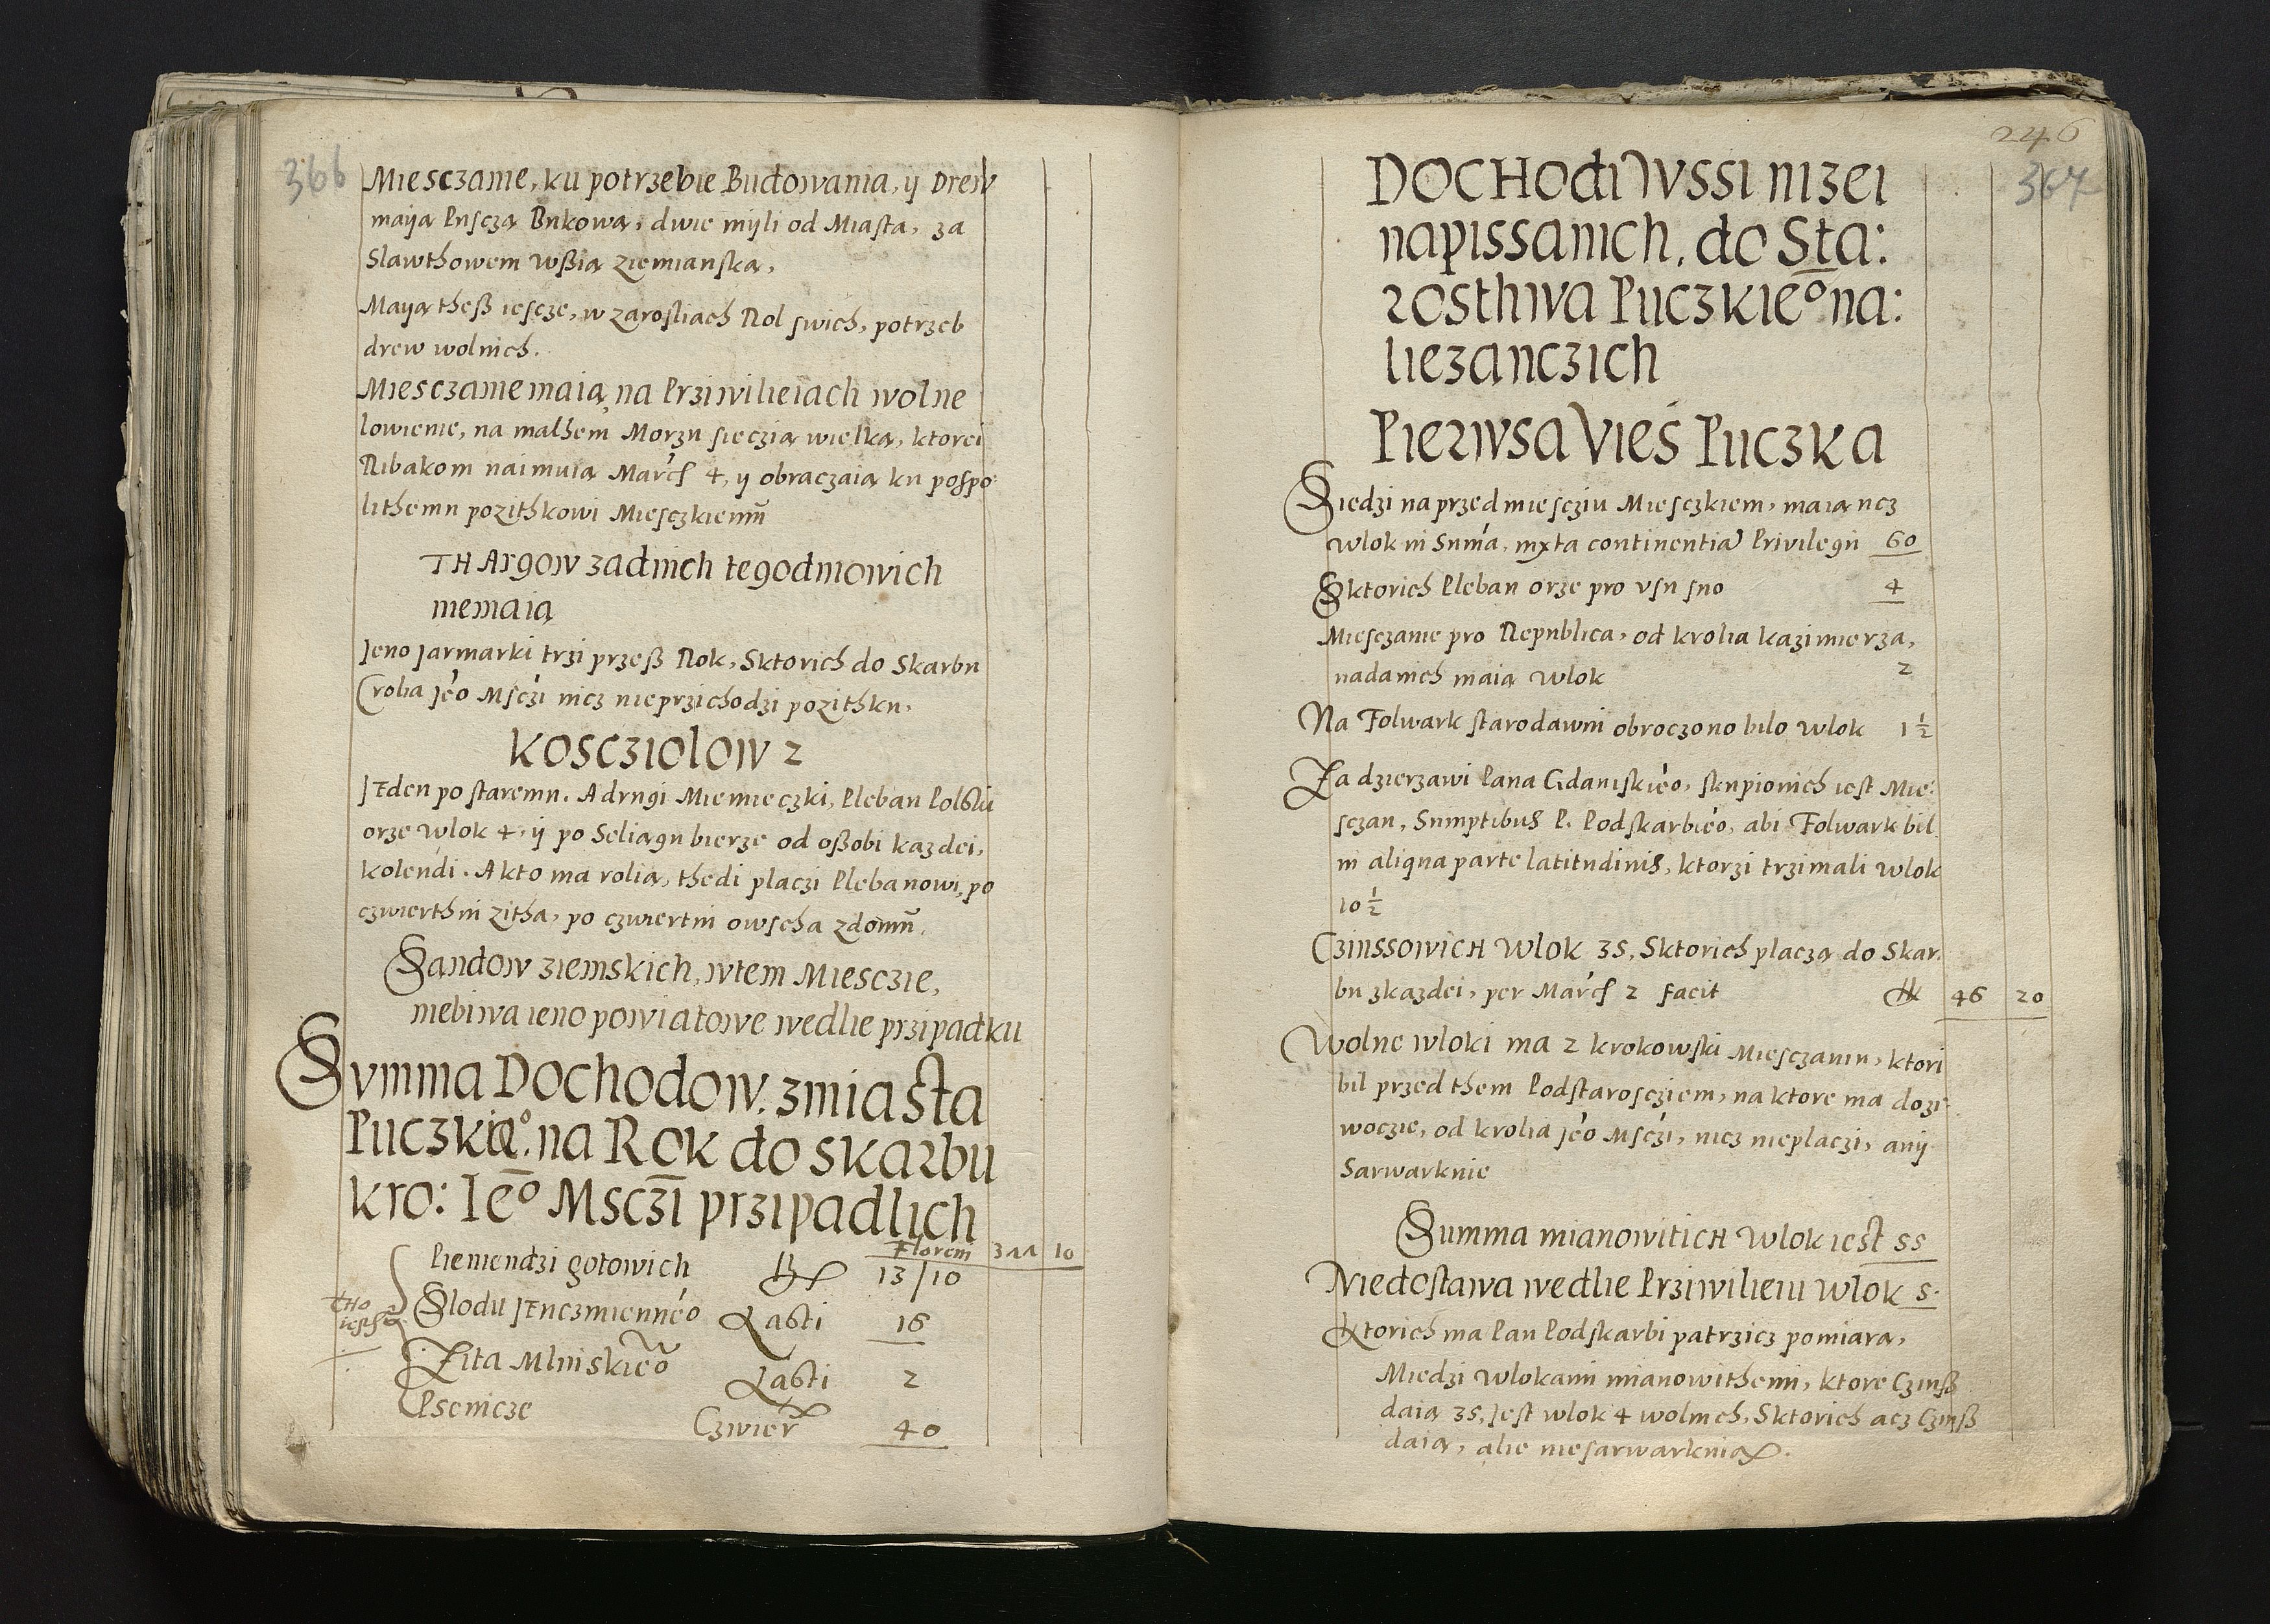 366
Miesczanie, ku potrzebie Budowania, ÿ Drew
maÿą Pusczą Bukową, dwie mÿli od Miasta, za
Slawthowem wßią ziemianską,
Maÿą theß iescze, w zarosliach Rol swich, potrzeb
drew wolnich.
Miesczanie maią na Prziwilieiach wolne
lowienie, na malhem Morzu sieczią wielką, ktorei
Ribakom naimuią Marcś 4, ÿ obraczaią ku pospo-
lithemu pozithkowi Miesczkiemū
THArgow zadnich tegodniowich
niemaią
Jeno Jarmarki trzi przeß Rok, Sktorich do Skarbu
Crolia Jéo Msczi nicz nieprzichodzi pozithku,
KOSCZIOLOW 2
JEden po staremu. A drugi Niemieczki, Pleban Polski
orze wlok 4, ÿ po Seliągu bierze od oßobi kazdei,
kolendi. A kto ma rolią, thedi placzi Plebanowi, po
czwierthni zitha, po czwiertni owscha zdomū,
Sandow ziemskich, wtem Miesczie,
niebiwa ieno powiatowe wedlie przipadku
Summa Dochodow. zmiasta
Puczkieº. na Rok do skarbu
kro: Ieº Msczi przipadlich
Floreni 311 10
Pieniendzi gotowich 13/10
THo iesth
Slodu JEnczmiennéo Lasti 16
Zita Mlniskieo Lasti 2
Psenicze Czwier 40
246
367
DOCHOdi Wssi nizei
napissanich, do Sta:
rosthwa Puczkieº na:
liezanczich
Pierwsa Vieś Puczka
Siedzi na przedmiesciu Miesczkiem, maiąncz
wlok in Suma, iuxta continentia Privilegii 60
Sktorich Pleban orze pro usu suo 4
Miesczanie pro Republica, od krolia kazimierza,
nadanich maią wlok 2
Na Folwark starodawni obroczono bilo wlok 1½
Za dzierzawi Pana Gdanskiéo, skupionich iest Mie-
sczan, Sumptibus P. Podskarbiéo, abi Folwark bil
in aliqua parte latitudinis, ktorzi trzimali wlok
10½
CzinssowicH Wlok 35, Sktorich placzą do Skar.
bu zkazdei, per Marcś 2 Facit 46 20
Wolne wloki ma 2 krokowski Miesczanin, ktori
bil przed them Podstarosciem, na ktore ma dozi-
woczie, od krolia Jéo Msczi, nicz nieplaczi, anÿ
Sarwarknie
Summa mianowiticH Wlok iest 55
Niedostawa wedlie Prziwilieiu Wlok 5.
ktorich ma Pan Podskarbi patrzicz pomiarą,
Miedzi wlokami mianowithemi, ktore Czinß
daią 35, Jest wlok 4 wolnich, Sktorich acz Czinß
daią, alie niesarwarknią.